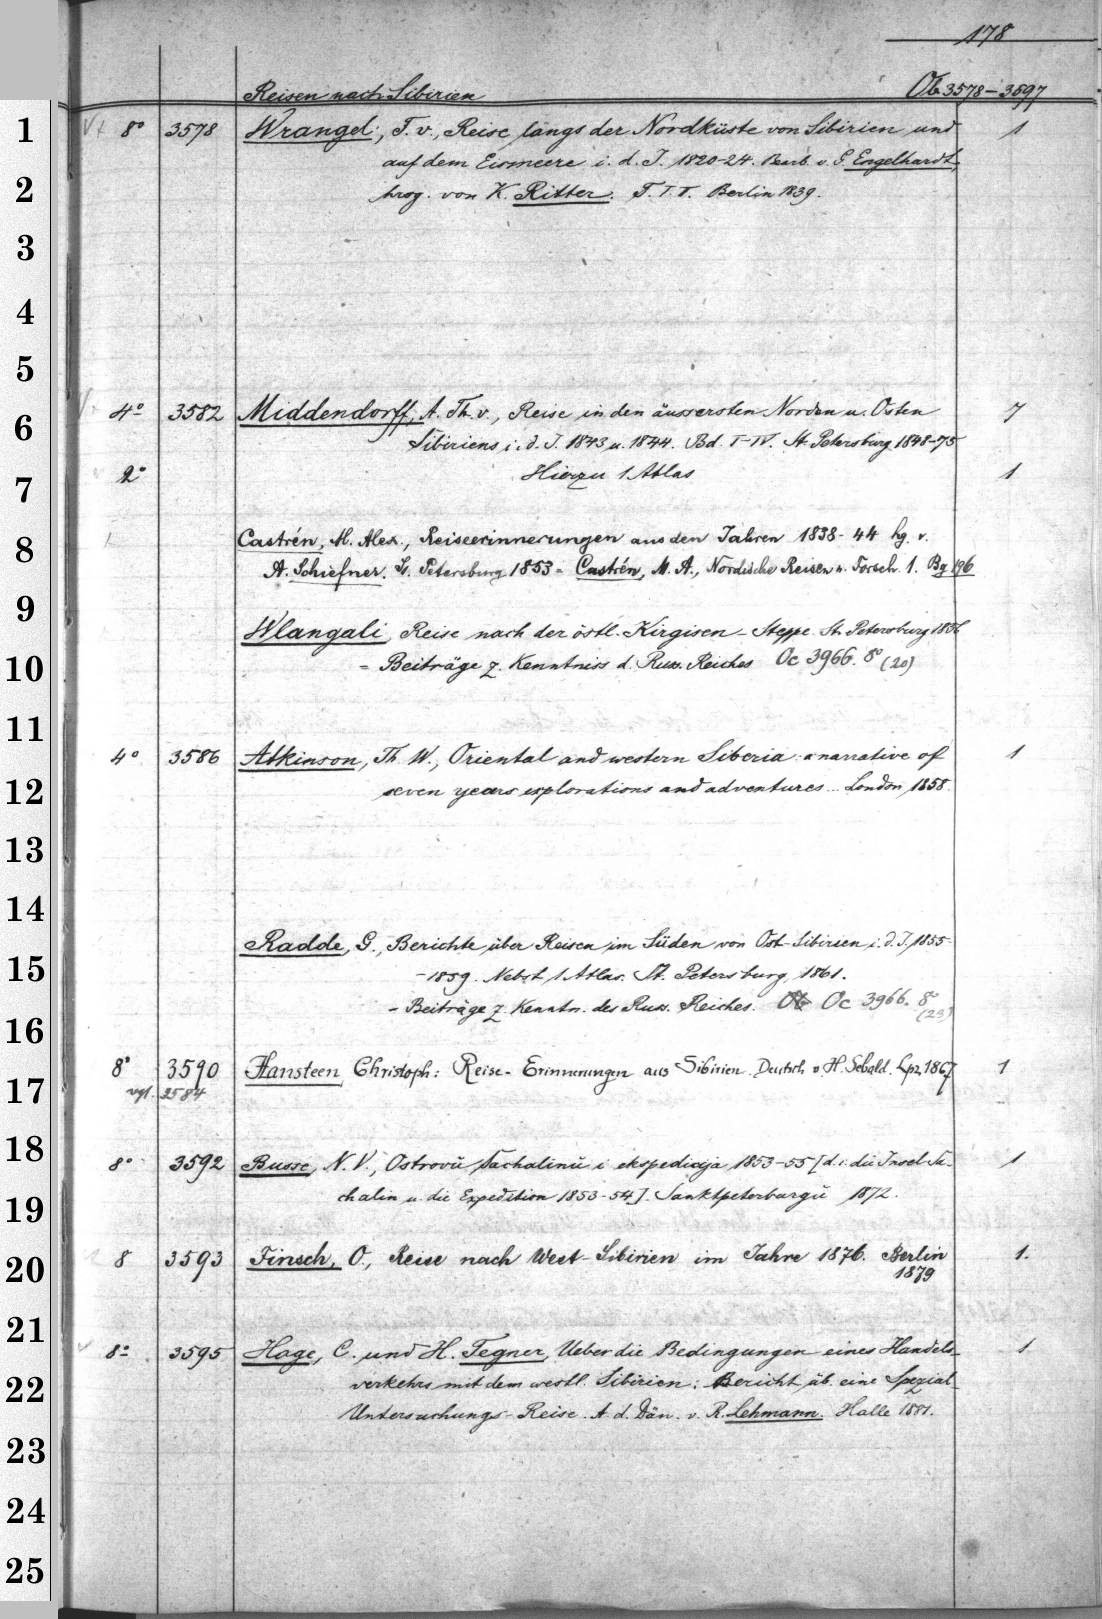 178
Reisen nach Sibirien Ob 3578-3597
1 8° 3578 Wrangel, F. v., Reise längs der Nordküste von Sibirien und 1
auf dem Eismeere i. d. J. 1820-24. Bearb. v. G. Engelhardt,
2 hrsg. von K. Ritter. T. I. II. Berlin 1839.
3
4
5
4° 3582 Middendorff, A. Th. v., Reise in den äussersten Norden u. Osten 7
6 Sibiriens i. d. J. 1843 u. 1844. Bd. I-IV. St. Petersburg 1848-75
7 2° Hierzu 1 Atlas 1
8 Castrén, M. Alex., Reiseerinnerungen aus den Jahren 1838-44 hg. v.
A. Schiefner. St. Petersburg 1853 = Castrén, M. A., Nordische Reisen u. Forsch. 1. Bg 196
9 Wlangali, Reise nach der östl. Kirgisen-Steppe. St. Petersburg 1856
10 = Beiträge z. Kenntniss d. Russ. Reiches Oc 3966. 8° (20)
11
4° 3586 Atkinson, Th. W., Oriental and western Siberia: a narrative of 1
12 seven years explorations and adventures... London 1858.
13
14
Radde, G., Berichte über Reisen im Süden von Ost-Sibirien i. d. J. 1855-
15 -1859. Nebst 1 Atlas. St. Petersburg 1861.
= Beiträge z. Kenntn. des Russ. Reiches. Oc 3966. 8° (23)
16
8° 3590 Hansteen, Christoph: Reise-Erinnerungen aus Sibirien. Deutsch v. H. Sebald. Lpz. 1867 1
17 vgl. 3584
18 8° 3592 Busse, N. V., Ostrovŭ Sachalinŭ i ekspedicija 1853-55 [d. i. die Insel Sa- 1
19 chalin u. die Expedition 1853-54]. Sanktpeterburgŭ 1872.
20 8 3593 Finsch, O., Reise nach West-Sibirien im Jahre 1876. Berlin 1.
1879
21 8° 3595 Hage, C. und H. Tegner, Ueber die Bedingungen eines Handels- 1
22 verkehrs mit dem westl. Sibirien: Bericht üb. eine Spezial-
Untersuchungs-Reise. A. d. Dän. v. R. Lehmann. Halle 1881.
23
24
25